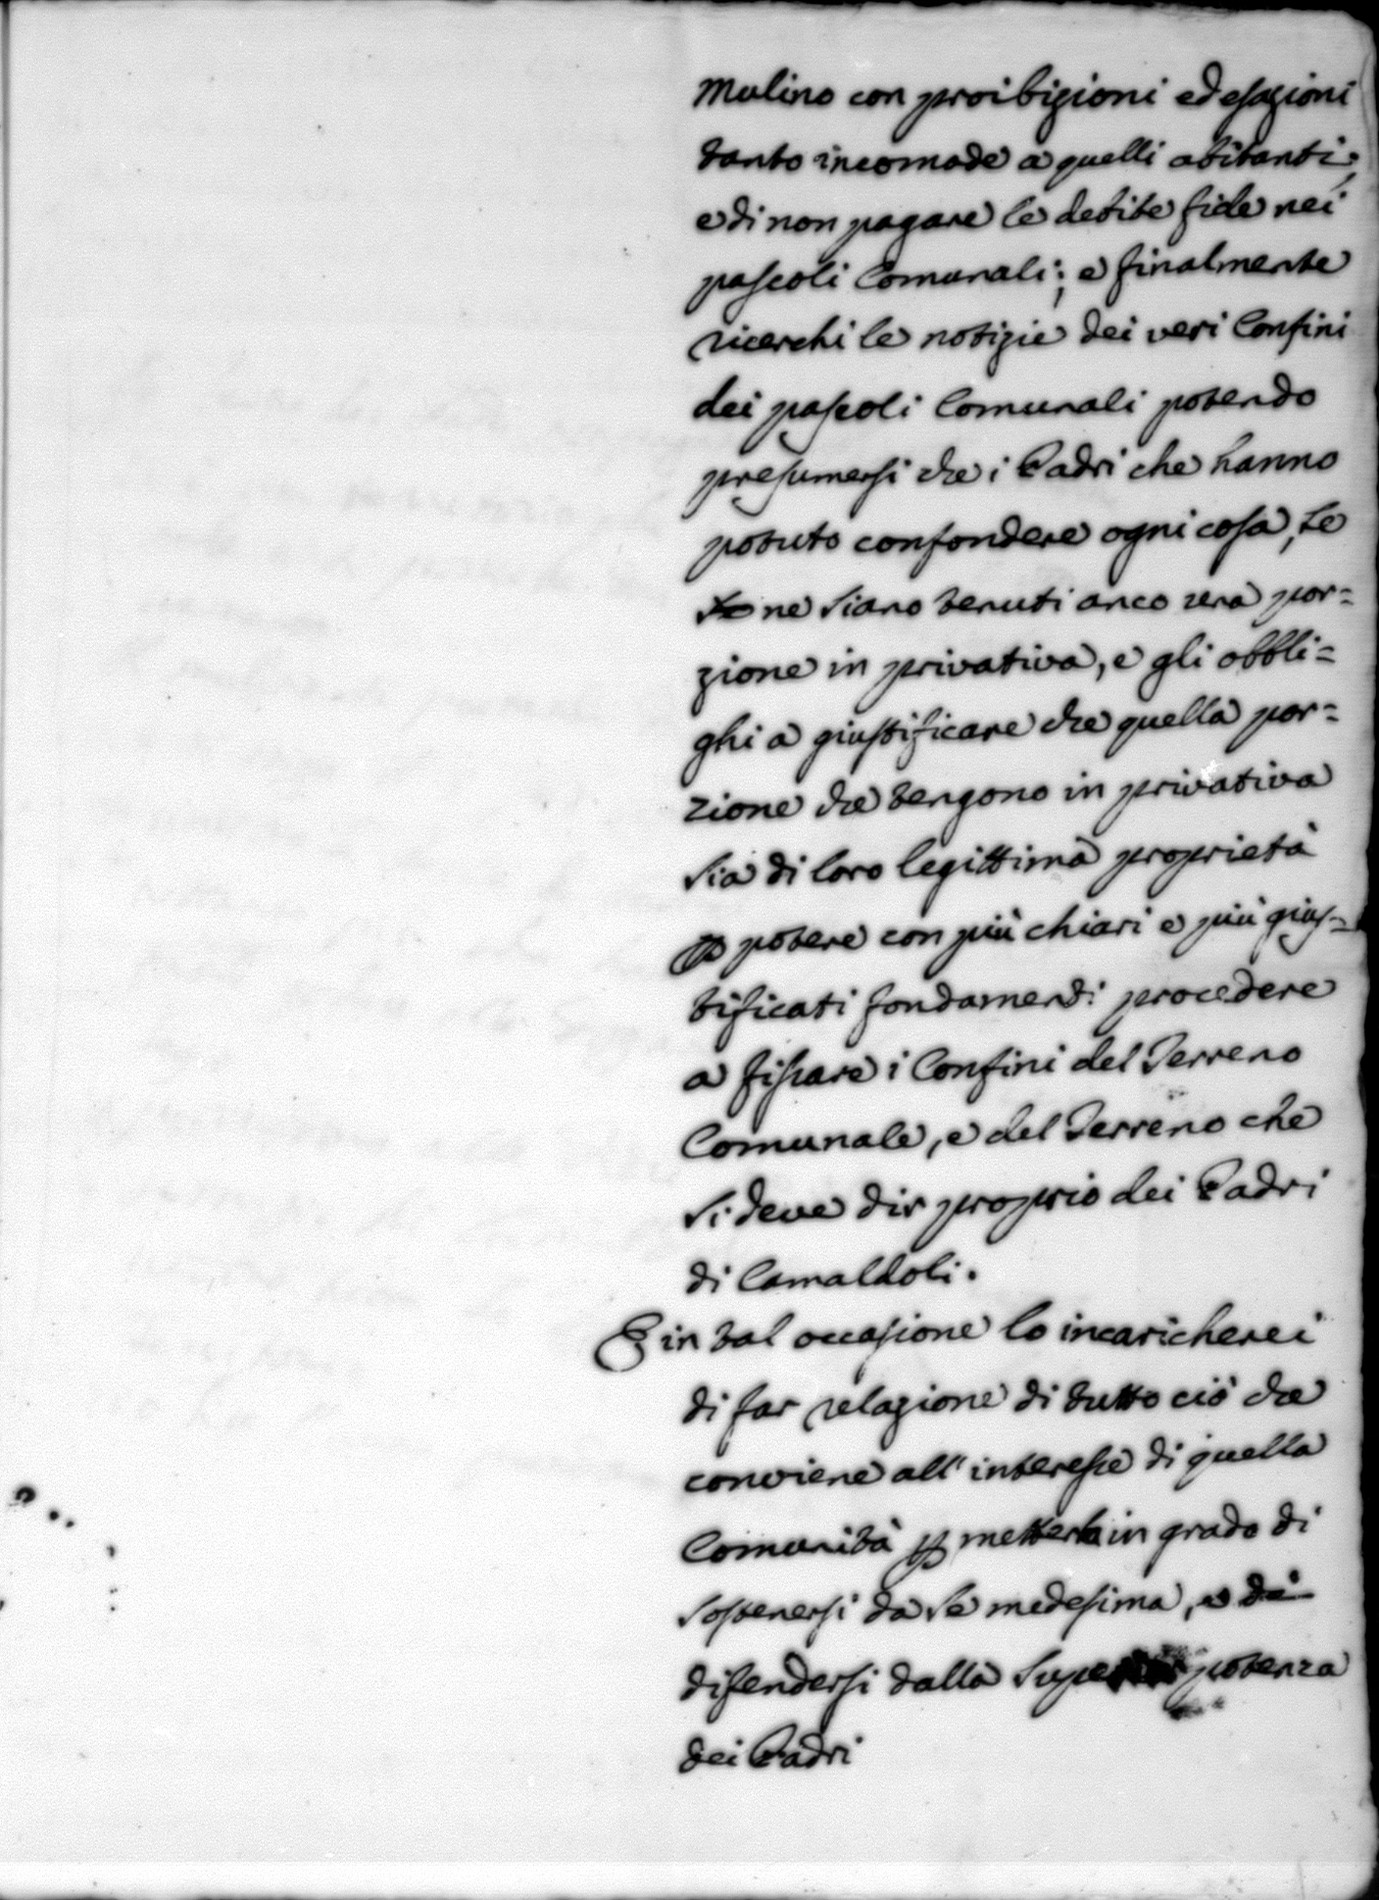 Mulino con proibizioni ed esazioni
tanto incomode a quelli abitanti,
e di non pagare le debite fide nei
pascoli Comunali; e finalmente
ricerchi le notizie dei veri Confini
dei pascoli Comunali potendo
presumersi che i Padri che hanno
potuto confondere ogni cosa, se
ne siano tenuti anco una por=
zione in privativa, e gli obbli=
ghi a giustificare che quella por=
zione che tengono in privativa
sia di loro legittima proprietà
p potere con più chiari e più gius=
tificati fondamenti procedere
a fissare i Confini del Terreno
Comunale, e del Terreno che
si deve dir proprio dei Padri
di Camaldoli.
E in tal occasione lo incaricherei
di far relazione di tutto ciò che
conviene all' interesse di quella
Comunità p metterla in grado di
sostenersi da se medesima, e di
difendersi dalla Super potenza
dei Padri